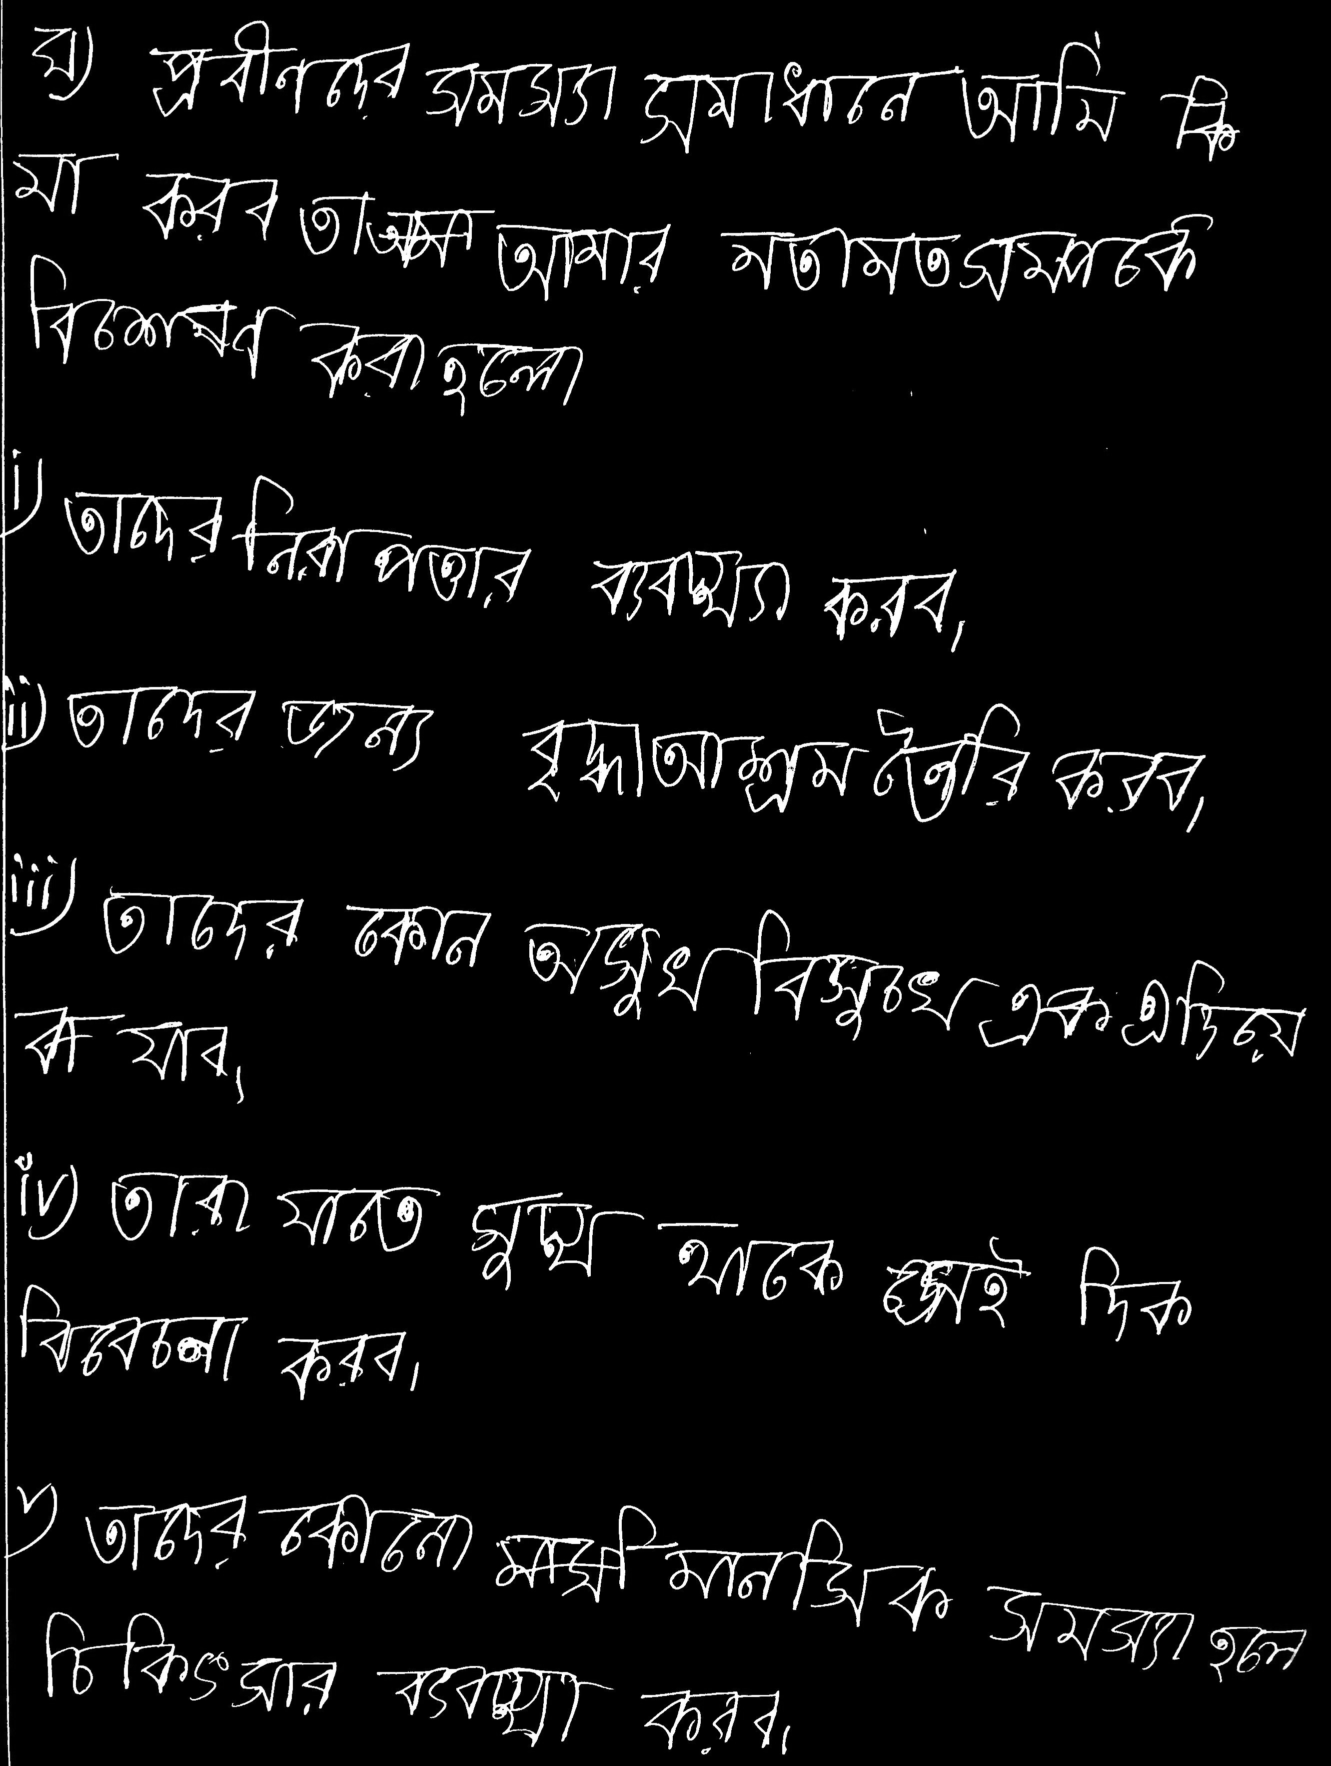 ঘ) প্রবীণদের সমস্যা সমাধানে আমি কি
যা করব তা আমার মতামত সম্পর্কে
বিশ্লেষণ করা হলো
i) তাদের নিরাপত্তার ব্যবস্থ্যা করব,
ii) তাদের জন্য বৃদ্ধাআশ্রম তৈরি করব,
iii) তাদের কোন অসুখ বিসুখে এক এড়িয়ে
যাব,
iv) তারা যাতে সুস্থ থাকে সেই দিক
বিবেচনা করব,
v) তাদের কোনো মানসিক সমস্যা হলে
চিকিৎসার ব্যবস্থা করব,